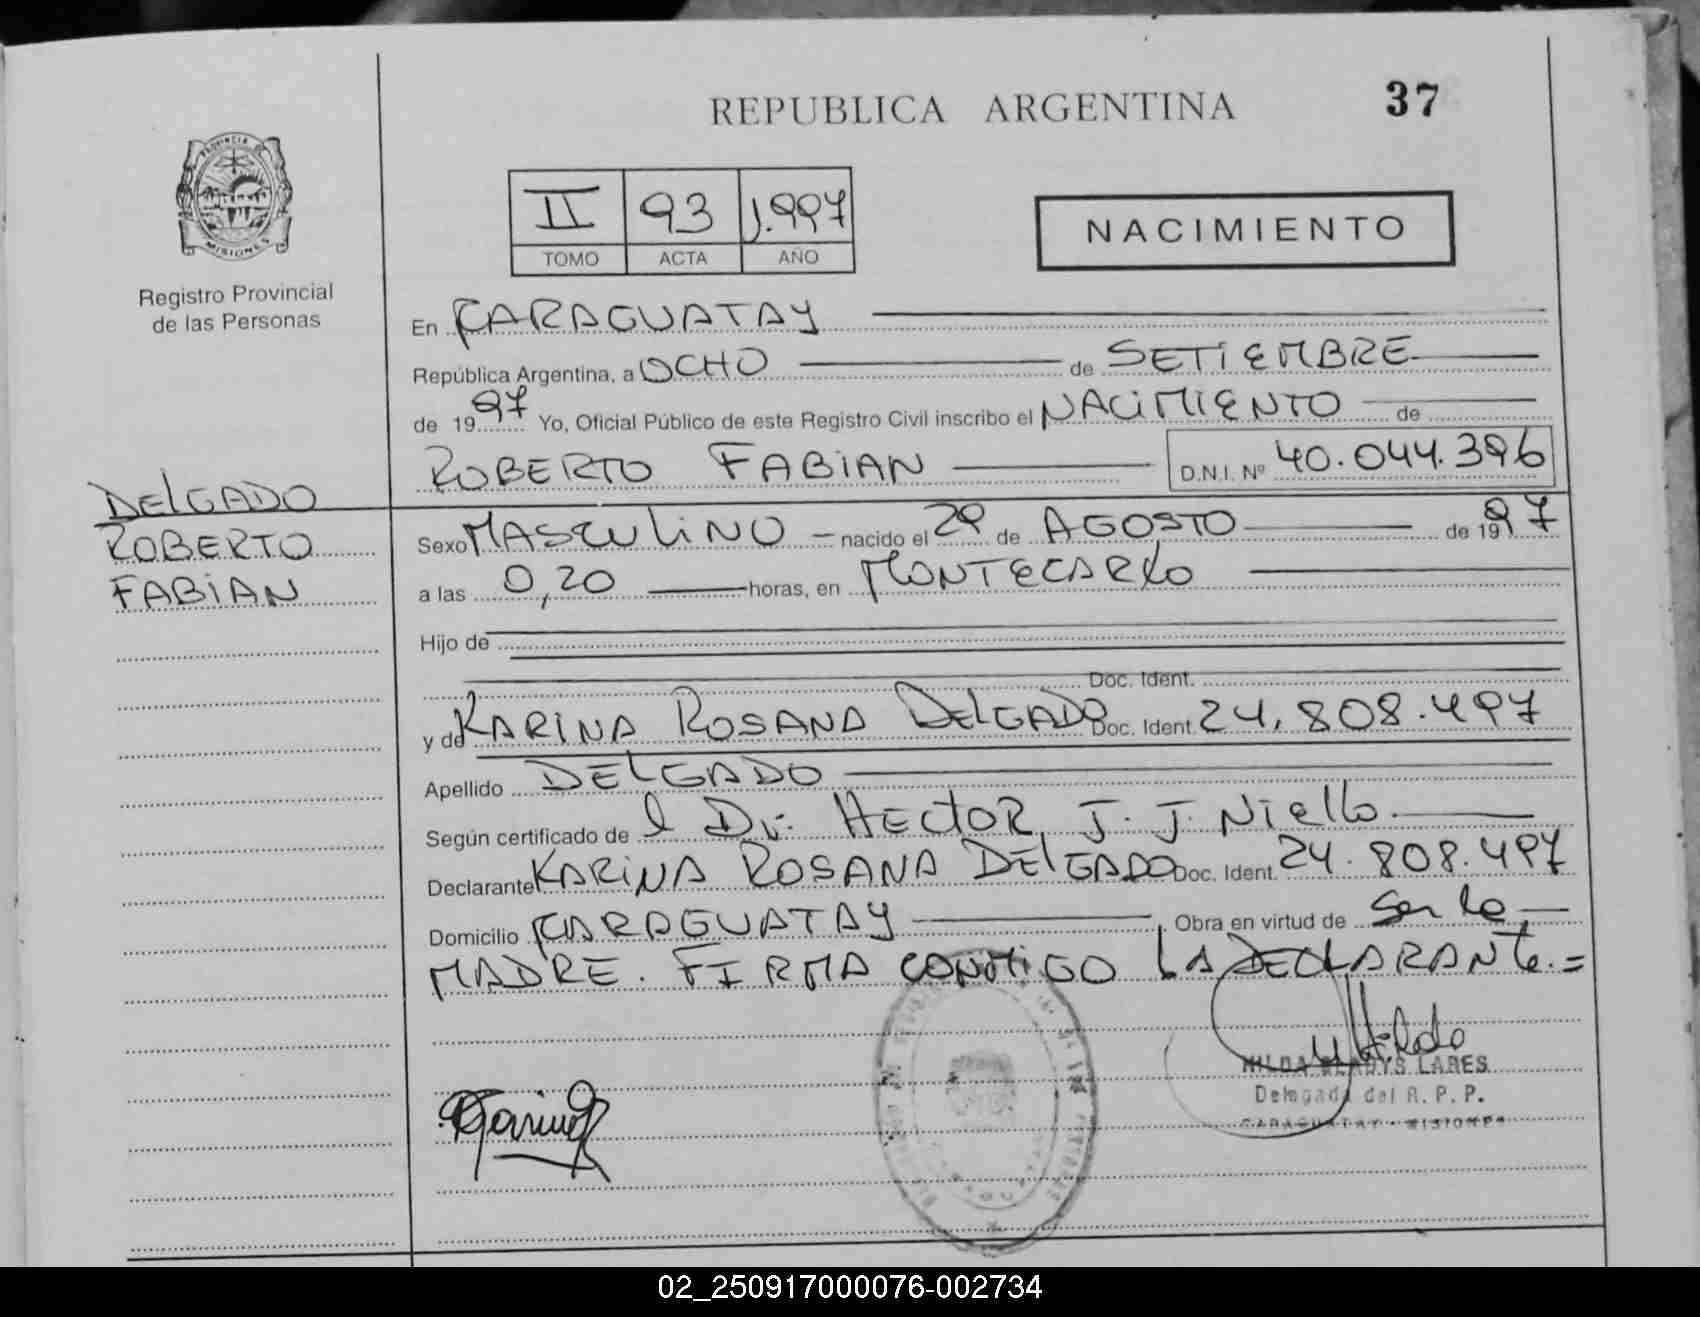 REPUBLICA ARGENTINA 37
PROVINCIA DE
MISIONES
Registro Provincial
de las Personas
II 93 1.997
TOMO ACTA AÑO
NACIMIENTO
En CARAGUATAY
República Argentina, a OCHO de SETIEMBRE
de 1997 Yo, Oficial Público de este Registro Civil inscribo el NACIMIENTO de
ROBERTO FABIAN D.N.I. Nº 40.044.396
DELGADO
ROBERTO
FABIAN
Sexo MASCULINO - nacido el 29 de AGOSTO de 1997
a las 0,20 horas, en MONTECARLO
Hijo de
Doc. Ident.
y de KARINA ROSANA DELGADO Doc. Ident. 24.808.497
Apellido DELGADO
Según certificado de l Dr. HECTOR J. J. Niello.
Declarante KARINA ROSANA DELGADO Doc. Ident. 24.808.497
Domicilio CARAGUATAY Obra en virtud de Ser la
MADRE. FIRMA CONMIGO LA DECLARANTE.=
HILDA GLADYS LARES
Delegada del R. P. P.
CARAGUATAY - MISIONES
02_250917000076-002734